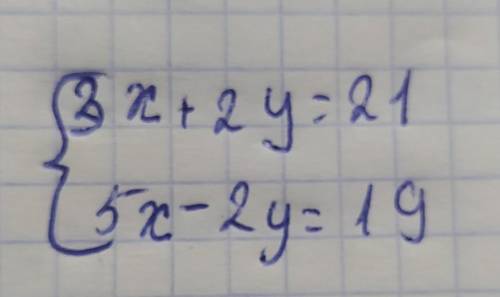 3x + 2y = 21
5x - 2y = 19